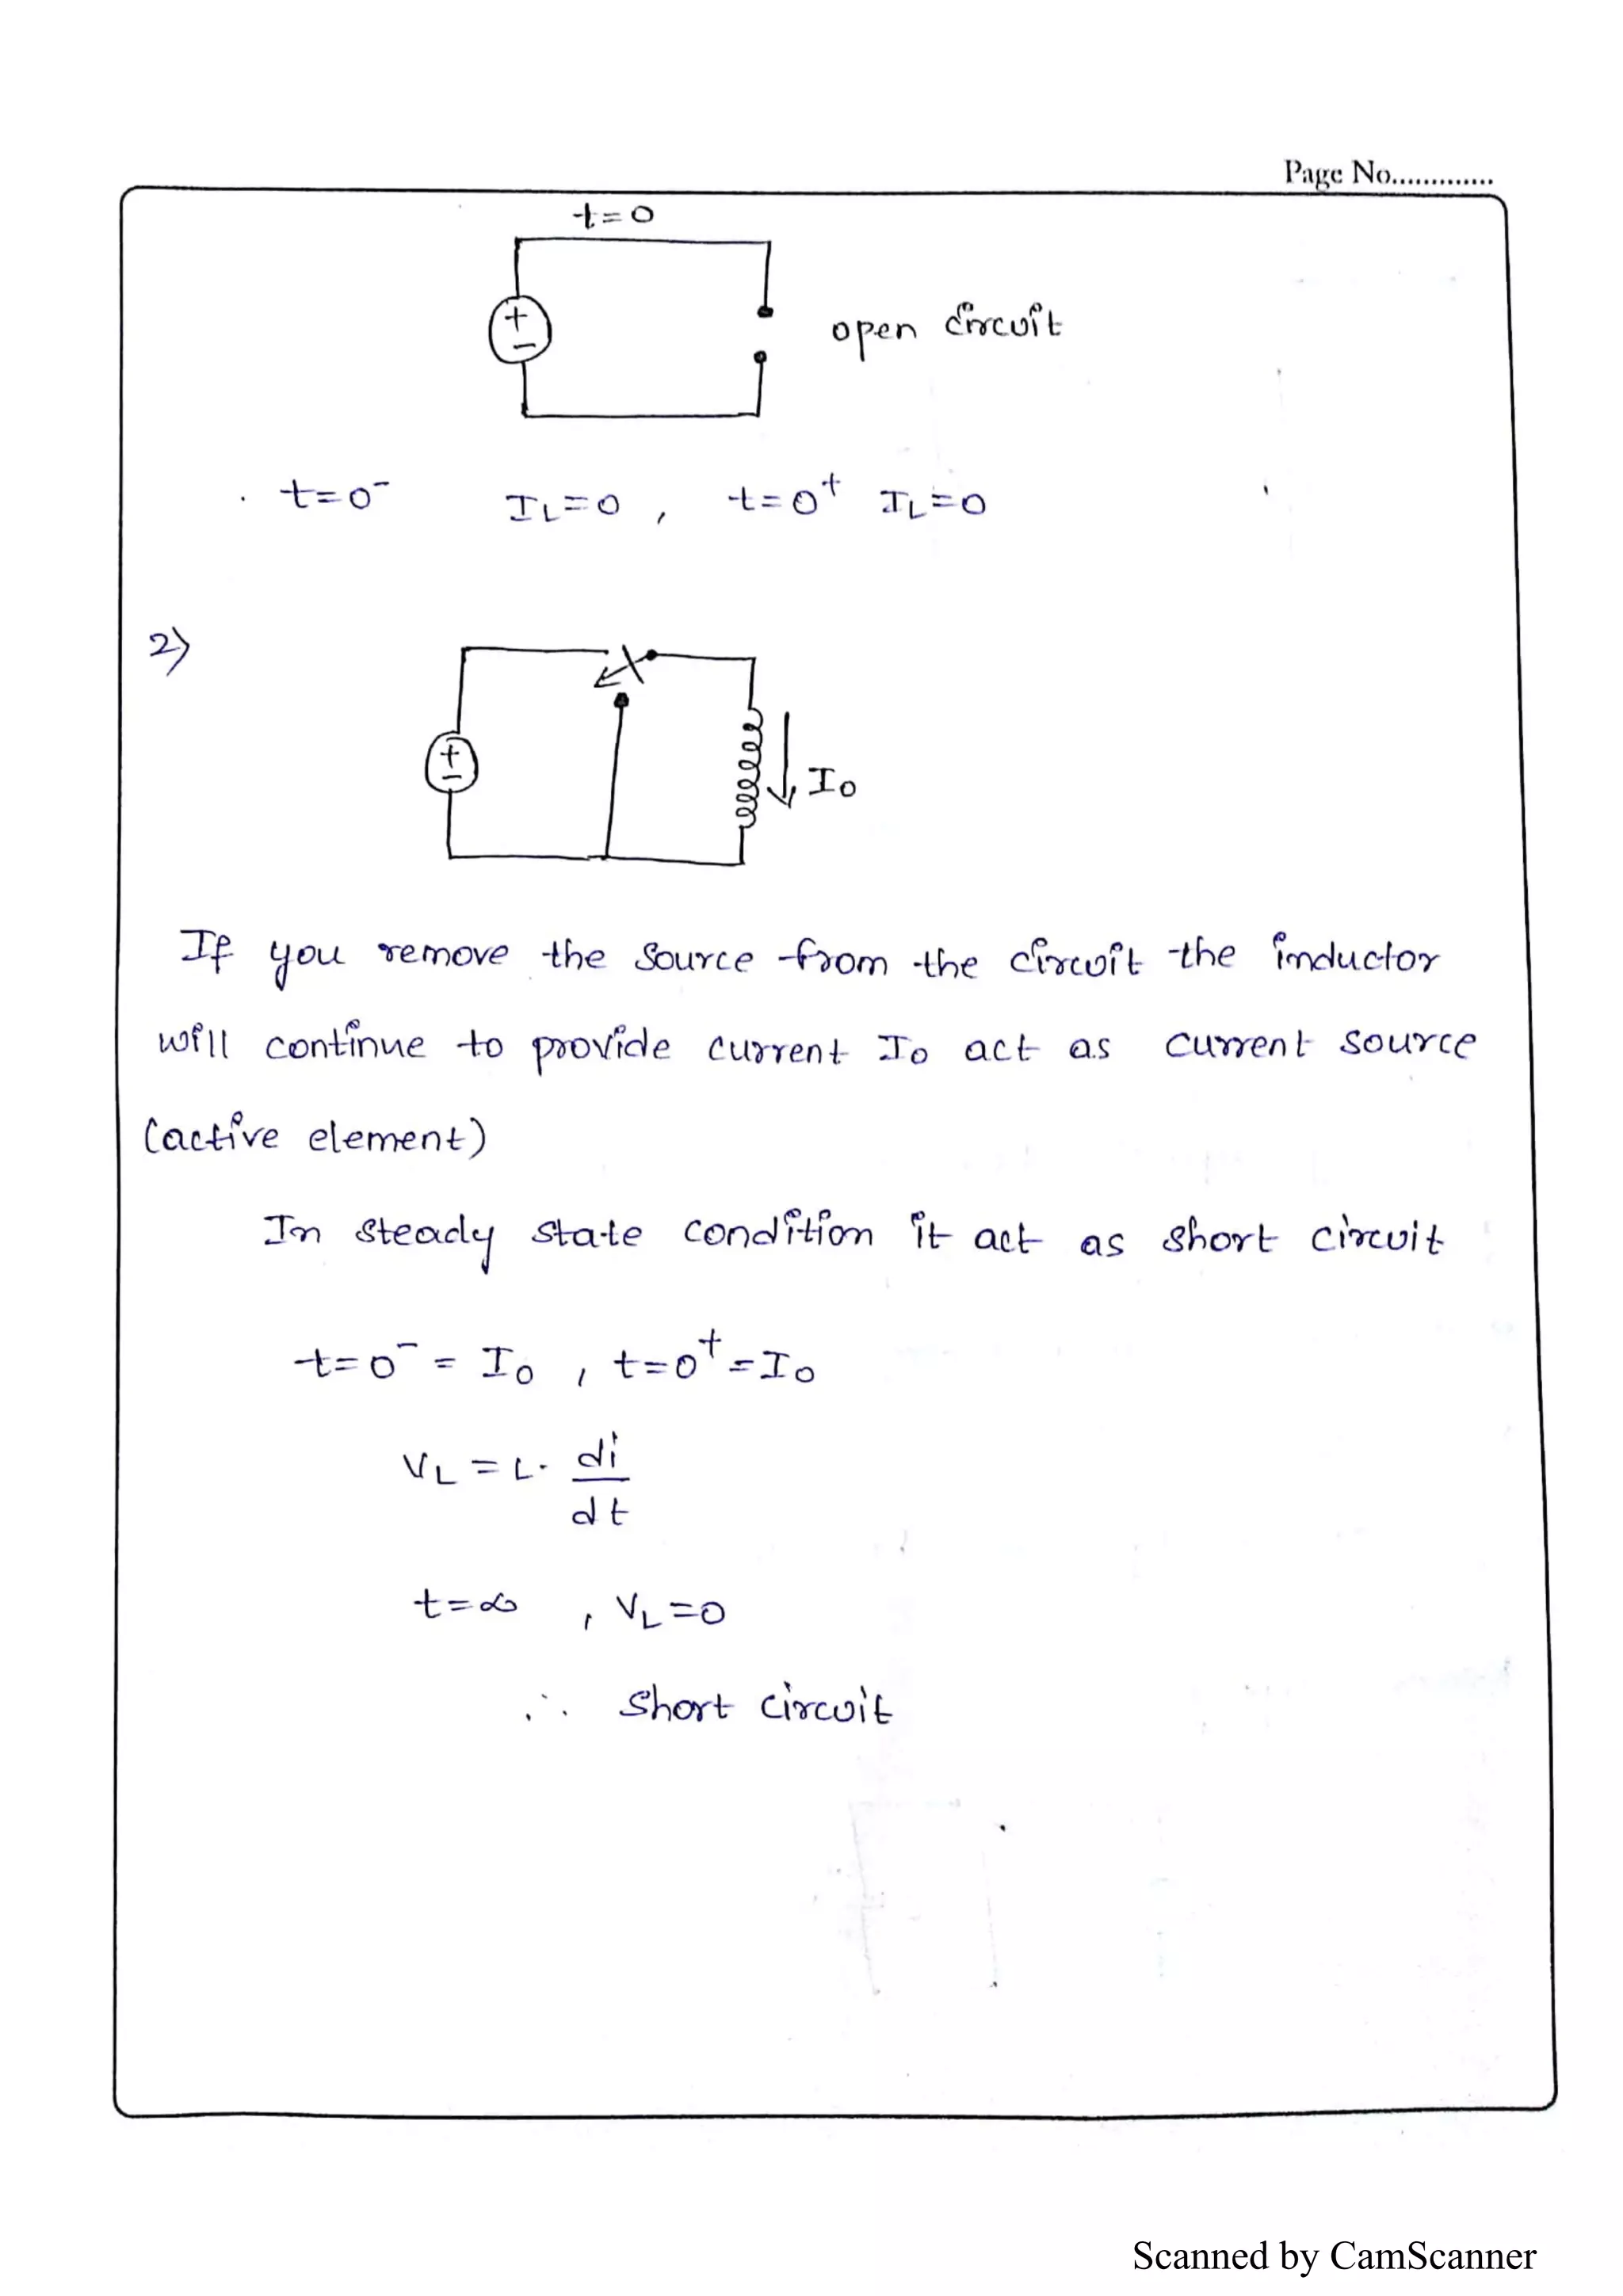 Page No.............
t=0
+
−
open circuit
t=0⁻ IL=0 , t=0⁺ IL=0
2)
+
−
I0
If you remove the source from the circuit the inductor
will continue to provide current I0 act as current source
(active element)
In steady state condition it act as short circuit
t=0⁻ = I0 , t=0⁺ = I0
VL = L. di
dt
t=∞ , VL=0
∴ short circuit
Scanned by CamScanner